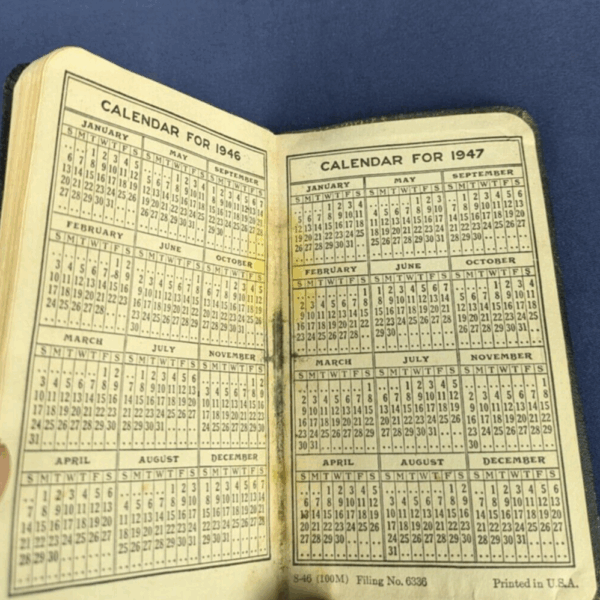 CALENDAR FOR 1946
JANUARY MAY SEPTEMBER
S M T W T F S S M T W T F S S M T W T F S
1 2 3 4 5 1 2 3 4 1 2 3 4 5 6 7
6 7 8 9 10 11 12 5 6 7 8 9 10 11 8 9 10 11 12 13 14
13 14 15 16 17 18 19 12 13 14 15 16 17 18 15 16 17 18 19 20 21
20 21 22 23 24 25 26 19 20 21 22 23 24 25 22 23 24 25 26 27 28
27 28 29 30 31 26 27 28 29 30 31 29 30
FEBRUARY JUNE OCTOBER
1 2 1 1 2 3 4 5
3 4 5 6 7 8 9 2 3 4 5 6 7 8 6 7 8 9 10 11 12
10 11 12 13 14 15 16 9 10 11 12 13 14 15 13 14 15 16 17 18 19
17 18 19 20 21 22 23 16 17 18 19 20 21 22 20 21 22 23 24 25 26
24 25 26 27 28 23 24 25 26 27 28 29 27 28 29 30 31
30
MARCH JULY NOVEMBER
S M T W T F S S M T W T F S S M T W T F S
1 2 1 2 3 4 5 6 1 2
3 4 5 6 7 8 9 7 8 9 10 11 12 13 3 4 5 6 7 8 9
10 11 12 13 14 15 16 14 15 16 17 18 19 20 10 11 12 13 14 15 16
17 18 19 20 21 22 23 21 22 23 24 25 26 27 17 18 19 20 21 22 23
24 25 26 27 28 29 30 28 29 30 31 24 25 26 27 28 29 30
31
APRIL AUGUST DECEMBER
S M T W T F S S M T W T F S S M T W T F S
1 2 3 4 5 6 1 2 3 1 2 3 4 5 6 7
7 8 9 10 11 12 13 4 5 6 7 8 9 10 8 9 10 11 12 13 14
14 15 16 17 18 19 20 11 12 13 14 15 16 17 15 16 17 18 19 20 21
21 22 23 24 25 26 27 18 19 20 21 22 23 24 22 23 24 25 26 27 28
28 29 30 25 26 27 28 29 30 31 29 30 31
CALENDAR FOR 1947
JANUARY MAY SEPTEMBER
S M T W T F S S M T W T F S S M T W T F S
1 2 3 4 1 2 3 1 2 3 4 5 6
5 6 7 8 9 10 11 4 5 6 7 8 9 10 7 8 9 10 11 12 13
12 13 14 15 16 17 18 11 12 13 14 15 16 17 14 15 16 17 18 19 20
19 20 21 22 23 24 25 18 19 20 21 22 23 24 21 22 23 24 25 26 27
26 27 28 29 30 31 25 26 27 28 29 30 31 28 29 30
FEBRUARY JUNE OCTOBER
S M T W T F S S M T W T F S S M T W T F S
1 1 2 3 4 5 6 7 1 2 3 4
2 3 4 5 6 7 8 8 9 10 11 12 13 14 5 6 7 8 9 10 11
9 10 11 12 13 14 15 15 16 17 18 19 20 21 12 13 14 15 16 17 18
16 17 18 19 20 21 22 22 23 24 25 26 27 28 19 20 21 22 23 24 25
23 24 25 26 27 28 29 30 26 27 28 29 30 31
MARCH JULY NOVEMBER
S M T W T F S S M T W T F S S M T W T F S
1 1 2 3 4 5 1
2 3 4 5 6 7 8 6 7 8 9 10 11 12 2 3 4 5 6 7 8
9 10 11 12 13 14 15 13 14 15 16 17 18 19 9 10 11 12 13 14 15
16 17 18 19 20 21 22 20 21 22 23 24 25 26 16 17 18 19 20 21 22
23 24 25 26 27 28 29 27 28 29 30 31 23 24 25 26 27 28 29
30 31 30
APRIL AUGUST DECEMBER
S M T W T F S S M T W T F S S M T W T F S
1 2 3 4 5 1 2 1 2 3 4 5 6
6 7 8 9 10 11 12 3 4 5 6 7 8 9 7 8 9 10 11 12 13
13 14 15 16 17 18 19 10 11 12 13 14 15 16 14 15 16 17 18 19 20
20 21 22 23 24 25 26 17 18 19 20 21 22 23 21 22 23 24 25 26 27
27 28 29 30 24 25 26 27 28 29 30 28 29 30 31
31
8-46 (100M) Filing No. 6336 Printed in U.S.A.